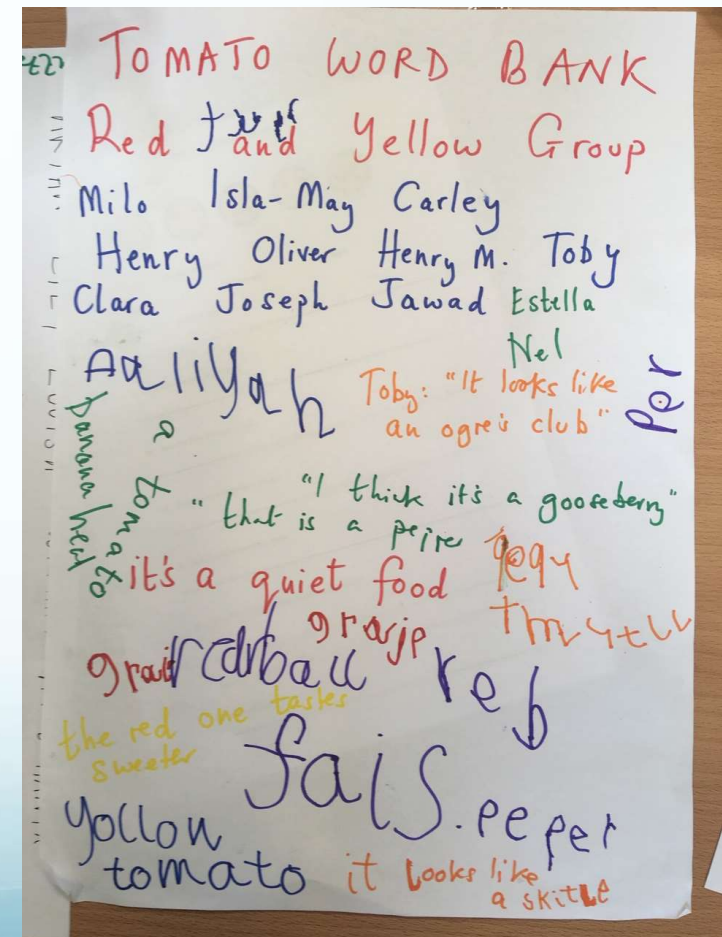 TOMATO WORD BANK
Red and Yellow Group
Milo Isla-May Carley
Henry Oliver Henry M. Toby
Clara Joseph Jawad Estella
Nel
Aaliyah
Toby: "It looks like
an ogre's club"
per
banana
a tomato
"I think it's a gooseberry"
"that is a
it's a quiet food
reb
the red one tastes
sweeter
fais.peper
yollow
tomato
it looks like
a skitle